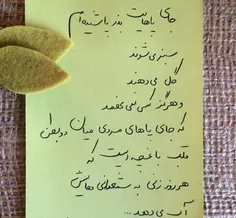 جای پاهایت بذر پاشیده‌ام
سبز می‌شوند
گل می‌دهند
و هرگز کسی نمی‌فهمد
که جای پاهای مردی میان دو بطن
قلب باغچه ایست که
هر روز زنی به شمعدانی هایش
آب می دهد...